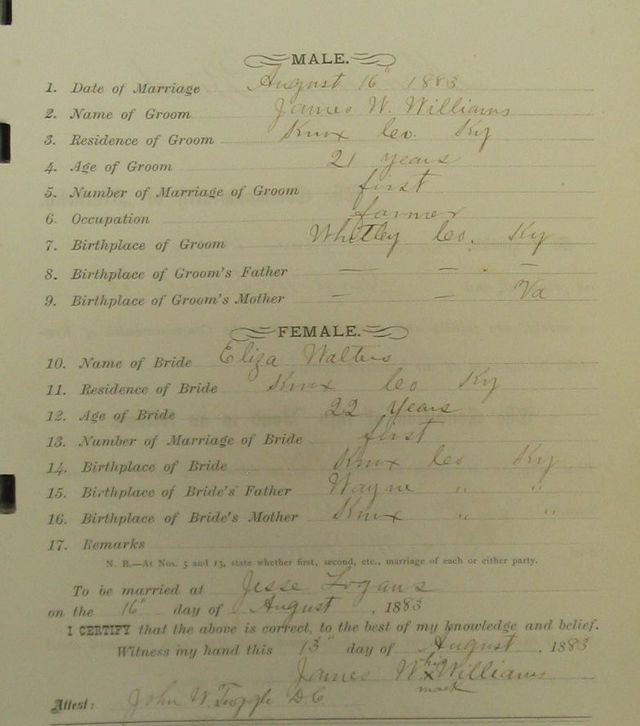 MALE.
1. Date of Marriage August 16" 1883
2. Name of Groom James W. Williams
3. Residence of Groom Knox Co. Ky
4. Age of Groom 21 years
5. Number of Marriage of Groom first
6. Occupation farmer
7. Birthplace of Groom Whitley Co. Ky
8. Birthplace of Groom's Father — — —
9. Birthplace of Groom's Mother — — Va
FEMALE.
10. Name of Bride Eliza Walters
11. Residence of Bride Knox Co Ky
12. Age of Bride 22 years
13. Number of Marriage of Bride first
14. Birthplace of Bride Knox Co Ky
15. Birthplace of Bride's Father Wayne " "
16. Birthplace of Bride's Mother Knox " "
17. Remarks
N. B.—At Nos. 5 and 13, state whether first, second, etc., marriage of each or either party.
To be married at Jesse Logans
on the 16" day of August, 1883
I CERTIFY that the above is correct, to the best of my knowledge and belief.
Witness my hand this 13" day of August, 1883
his
James W. x Williams
mark
Attest: John W. Tuggle D.C.